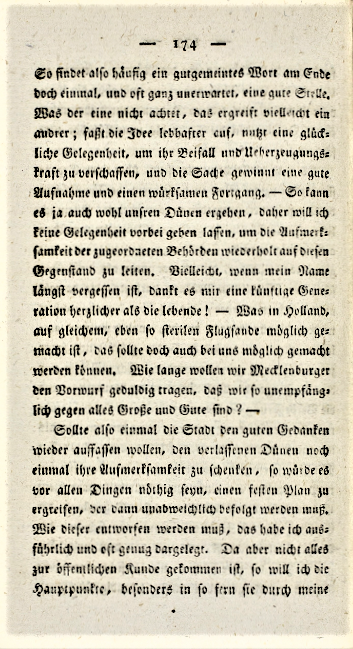 — 174 —
So findet also häufig ein gutgemeintes Wort am Ende
doch einmal, und oft ganz unerwartet, eine gute Stelle.
Was der eine nicht achtet, das ergreift vielleicht ein
andrer; faßt die Idee lebhafter auf, nutzt eine glück-
liche Gelegenheit, um ihr Beifall und Ueberzeugungs-
kraft zu verschaffen, und die Sache gewinnt eine gute
Aufnahme und einen würksamen Fortgang. — So kann
es ja auch wohl unsren Dünen ergehen, daher will ich
keine Gelegenheit vorbei gehen lassen, um die Aufmerk-
samkeit der zugeordneten Behörden wiederholt auf diesen
Gegenstand zu leiten. Vielleicht, wenn mein Name
längst vergessen ist, dankt es mir eine künftige Gene-
ration herzlicher als die lebende! — Was in Holland,
auf gleichem, eben so sterilen Flugsande möglich ge-
macht ist, das sollte doch auch bei uns möglich gemacht
werden können. Wie lange wollen wir Mecklenburger
den Vorwurf geduldig tragen, daß wir so unempfäng-
lich gegen alles Große und Gute sind? —
Sollte also einmal die Stadt den guten Gedanken
wieder auffassen wollen, den verlassenen Dünen noch
einmal ihre Aufmerksamkeit zu schenken, so würde es
vor allen Dingen nöthig seyn, einen festen Plan zu
ergreifen, der dann unabweichlich befolgt werden muß.
Wie dieser entworfen werden muß, das habe ich aus-
führlich und oft genug dargelegt. Da aber nicht alles
zur öffentlichen Kunde gekommen ist, so will ich die
Hauptpunkte, besonders in so fern sie durch meine